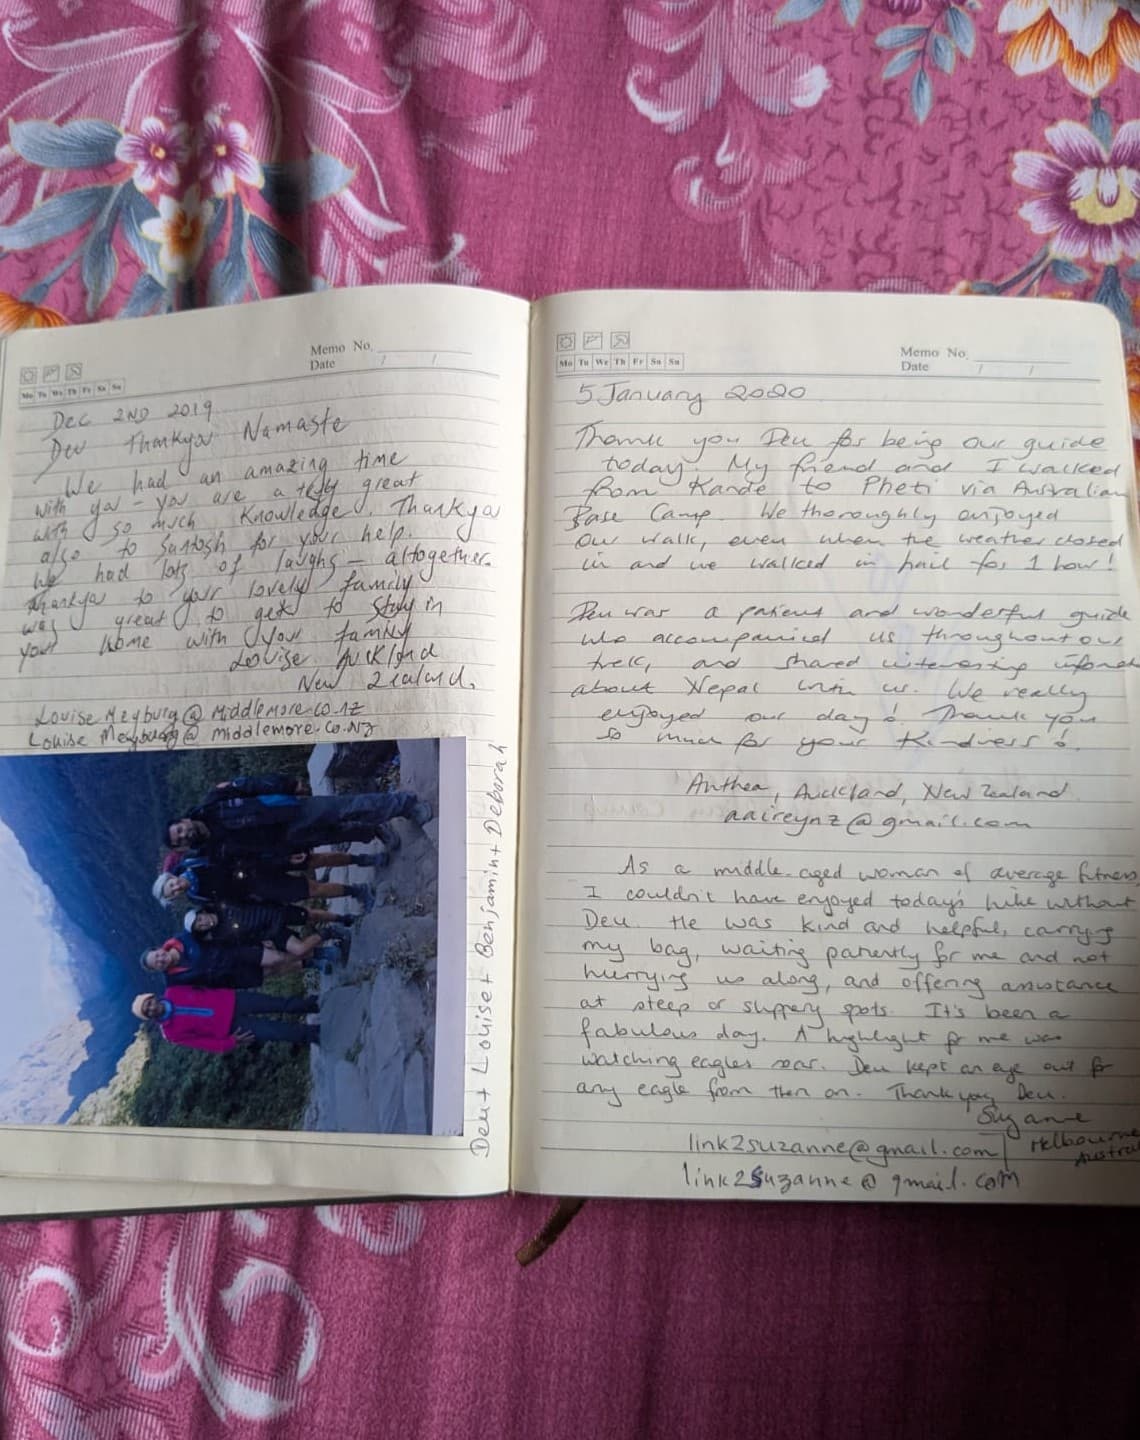 Memo No.
Date / /
Mo Tu We Th Fr Sa Su
Dec 2ND 2019
Deu Thankya Namaste
We had an amazing time
with ya - you are a great
with so much Knowledge. Thankya
also to Santosh for your help.
We had lots of laughs - altogether.
Thankya to your lovely family
was great to get to stay in
your home with your family
Louise Auckland
New Zealand.
Louise.Meyburg@Middlemore.co.NZ
Louise Meyburg@middlemore.Co.NZ
Deu + Louise + Benjamin + Deborah
Memo No.
Date / /
Mo Tu We Th Fr Sa Su
5 January 2020
Thank you Deu for being our guide
today. My friend and I walked
from Kande to Pheti via Australian
Base Camp. We thoroughly enjoyed
our walk, even when the weather closed
in and we walked in hail for 1 hour!
Deu was a patient and wonderful guide
who accompanied us throughout our
trek, and shared interesting
about Nepal with us. We really
enjoyed our day! Thank you
so much for your Kindness!
Anthea, Auckland, New Zealand
aaireynz@gmail.com
As a middle-aged woman of average fitness,
I couldn't have enjoyed today's hike without
Deu. He was kind and helpful, carrying
my bag, waiting patiently for me and not
hurrying us along, and offering assistance
at steep or slippery spots. It's been a
fabulous day. A highlight for me was
watching eagles soar. Deu kept an eye out for
any eagle from then on. Thank you Deu.
Suzanne
Melbourne
Austra
link2suzanne@gmail.com
link2Suzanne@gmail.com